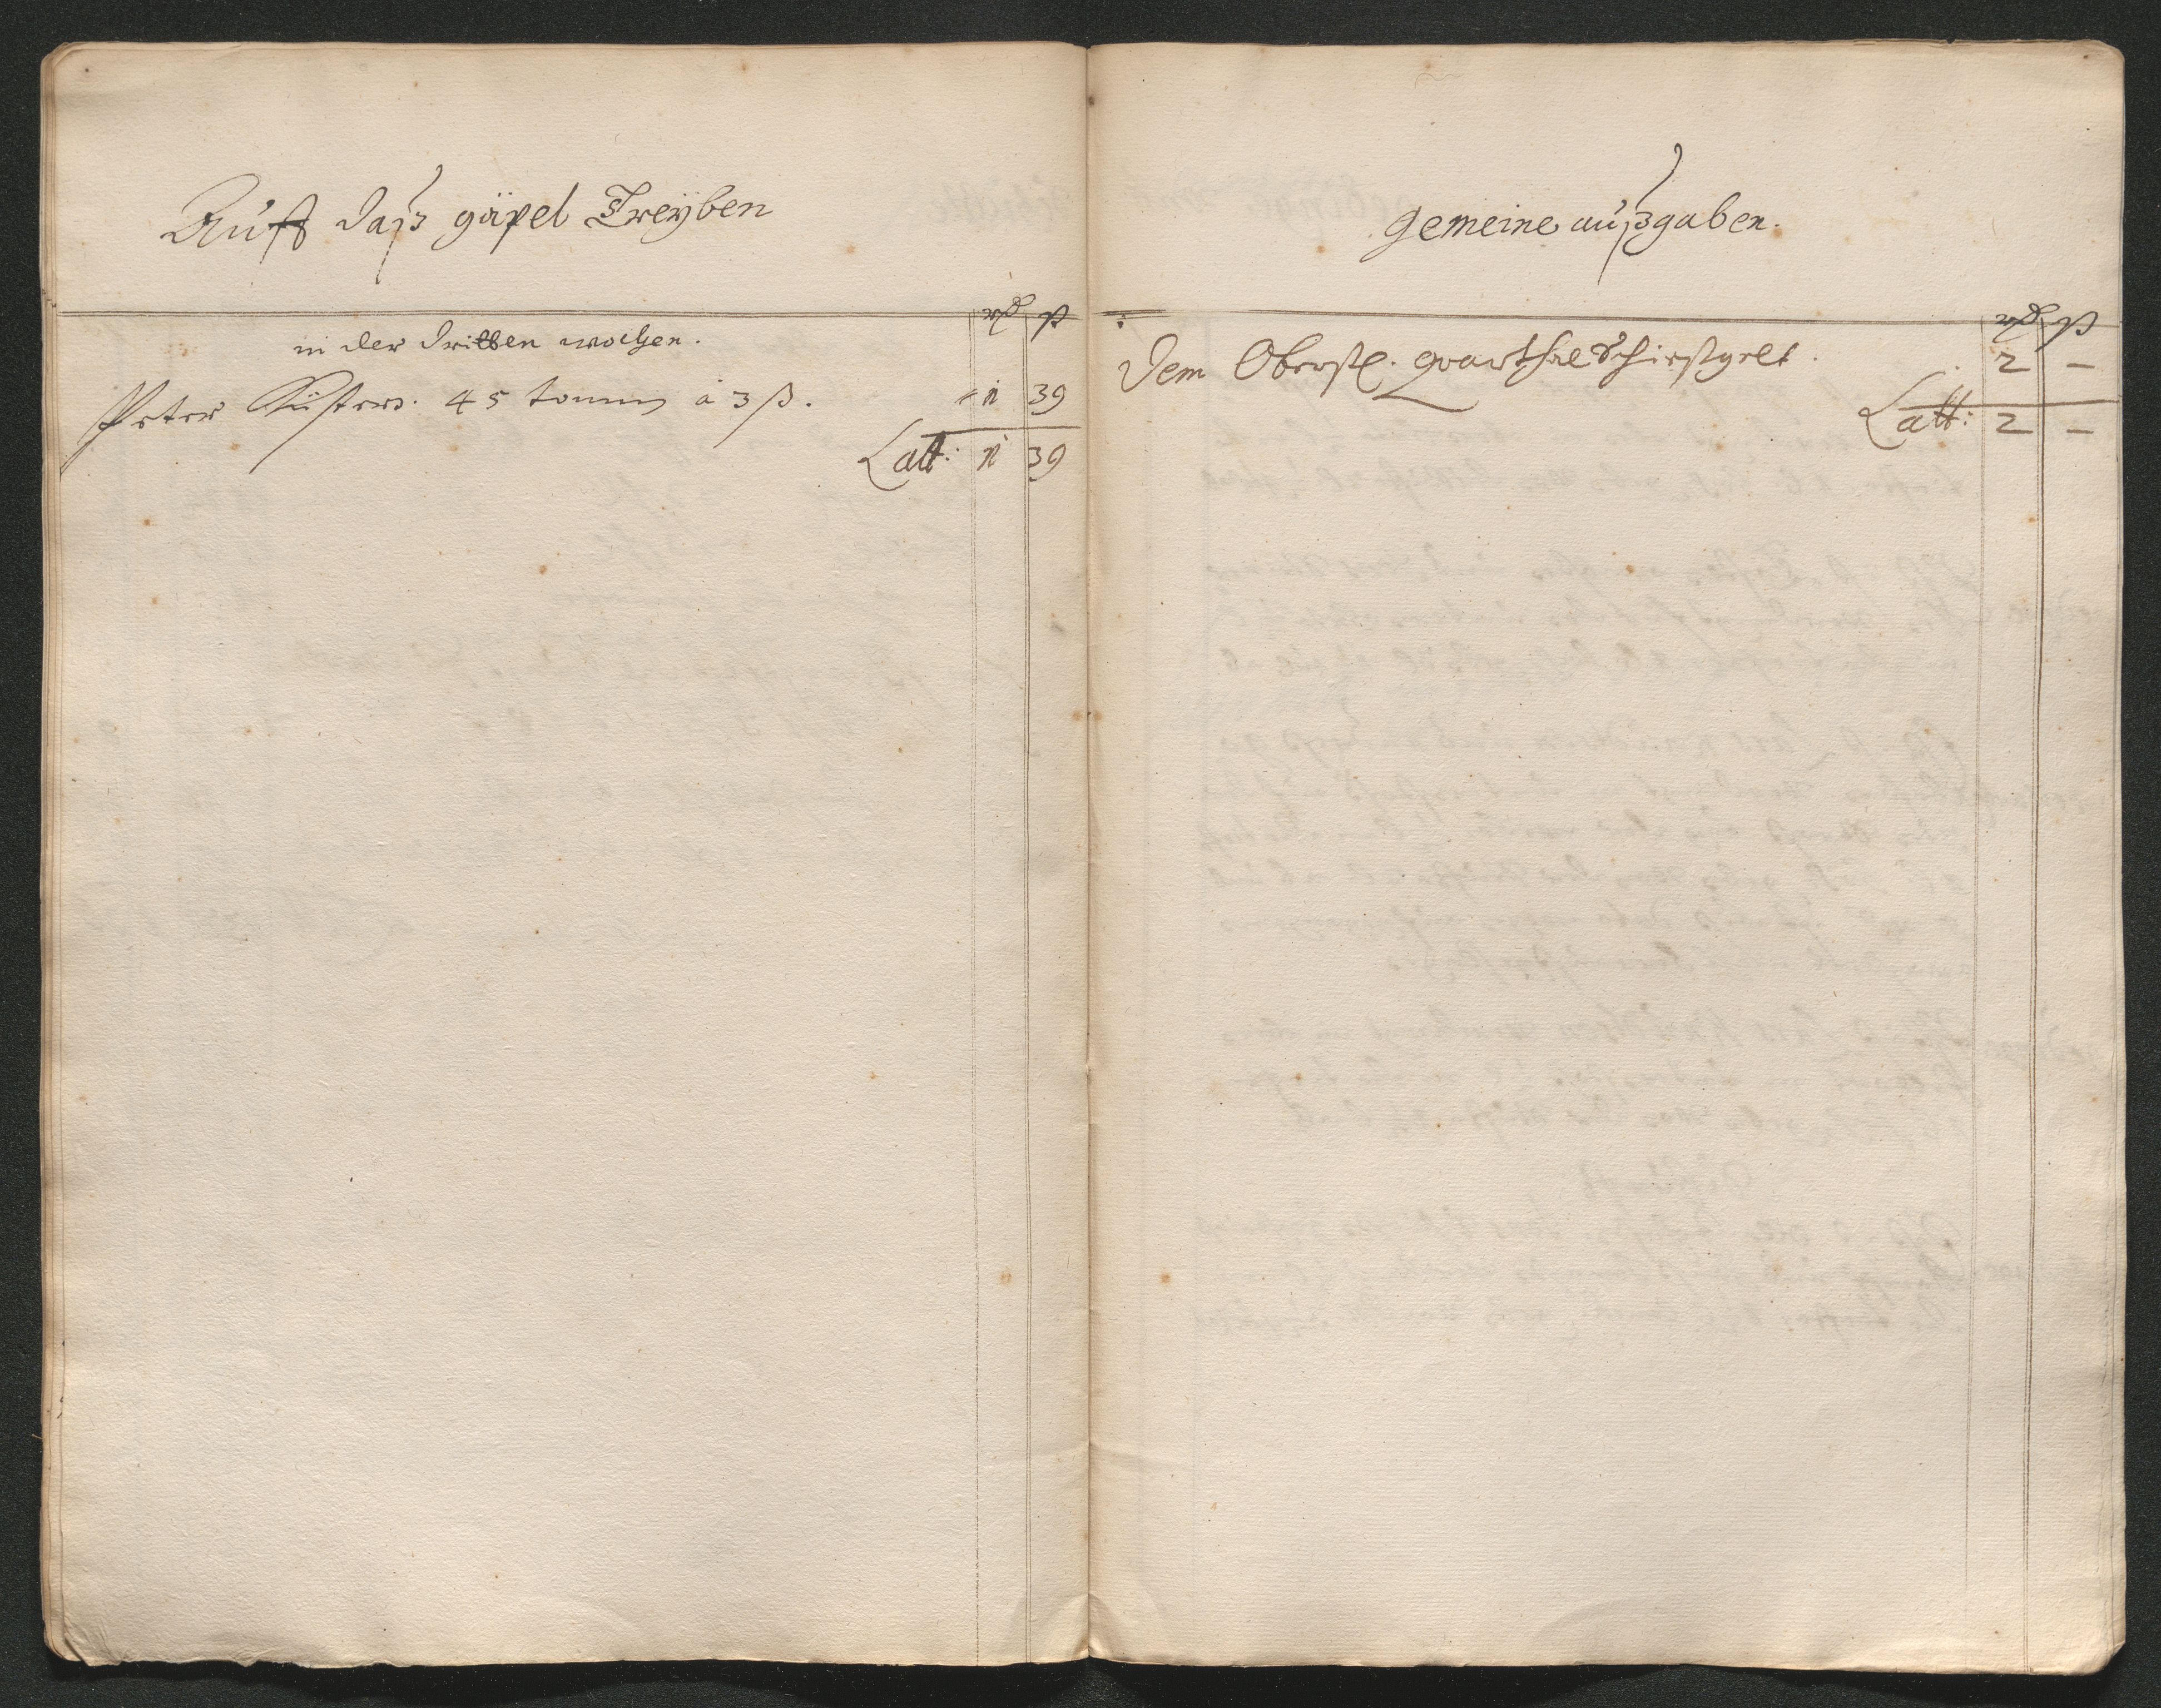 Auff daß göpel Treÿben
rd ß
in der dritten wochen.
Peter Küsters. 45 tonnen a 3 ß. 1 39
Latt: 1 39
gemeine außgaben.
rd ß
Dem Oberst. quarthal Schirstgelt. 2 –
Latt: 2 –